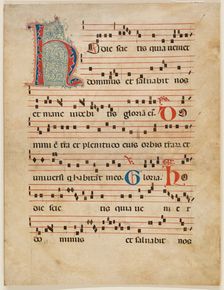 Hodie scie tis quia veniet
dominus et salvabit nos
et mane videbi tis gloria ei. Do
mini est tra et plenitu eius orbis trar. et
universi q habitat in eo. Gloria. Ho
die scie tis quia ve ni et
do minus et salvabit nos